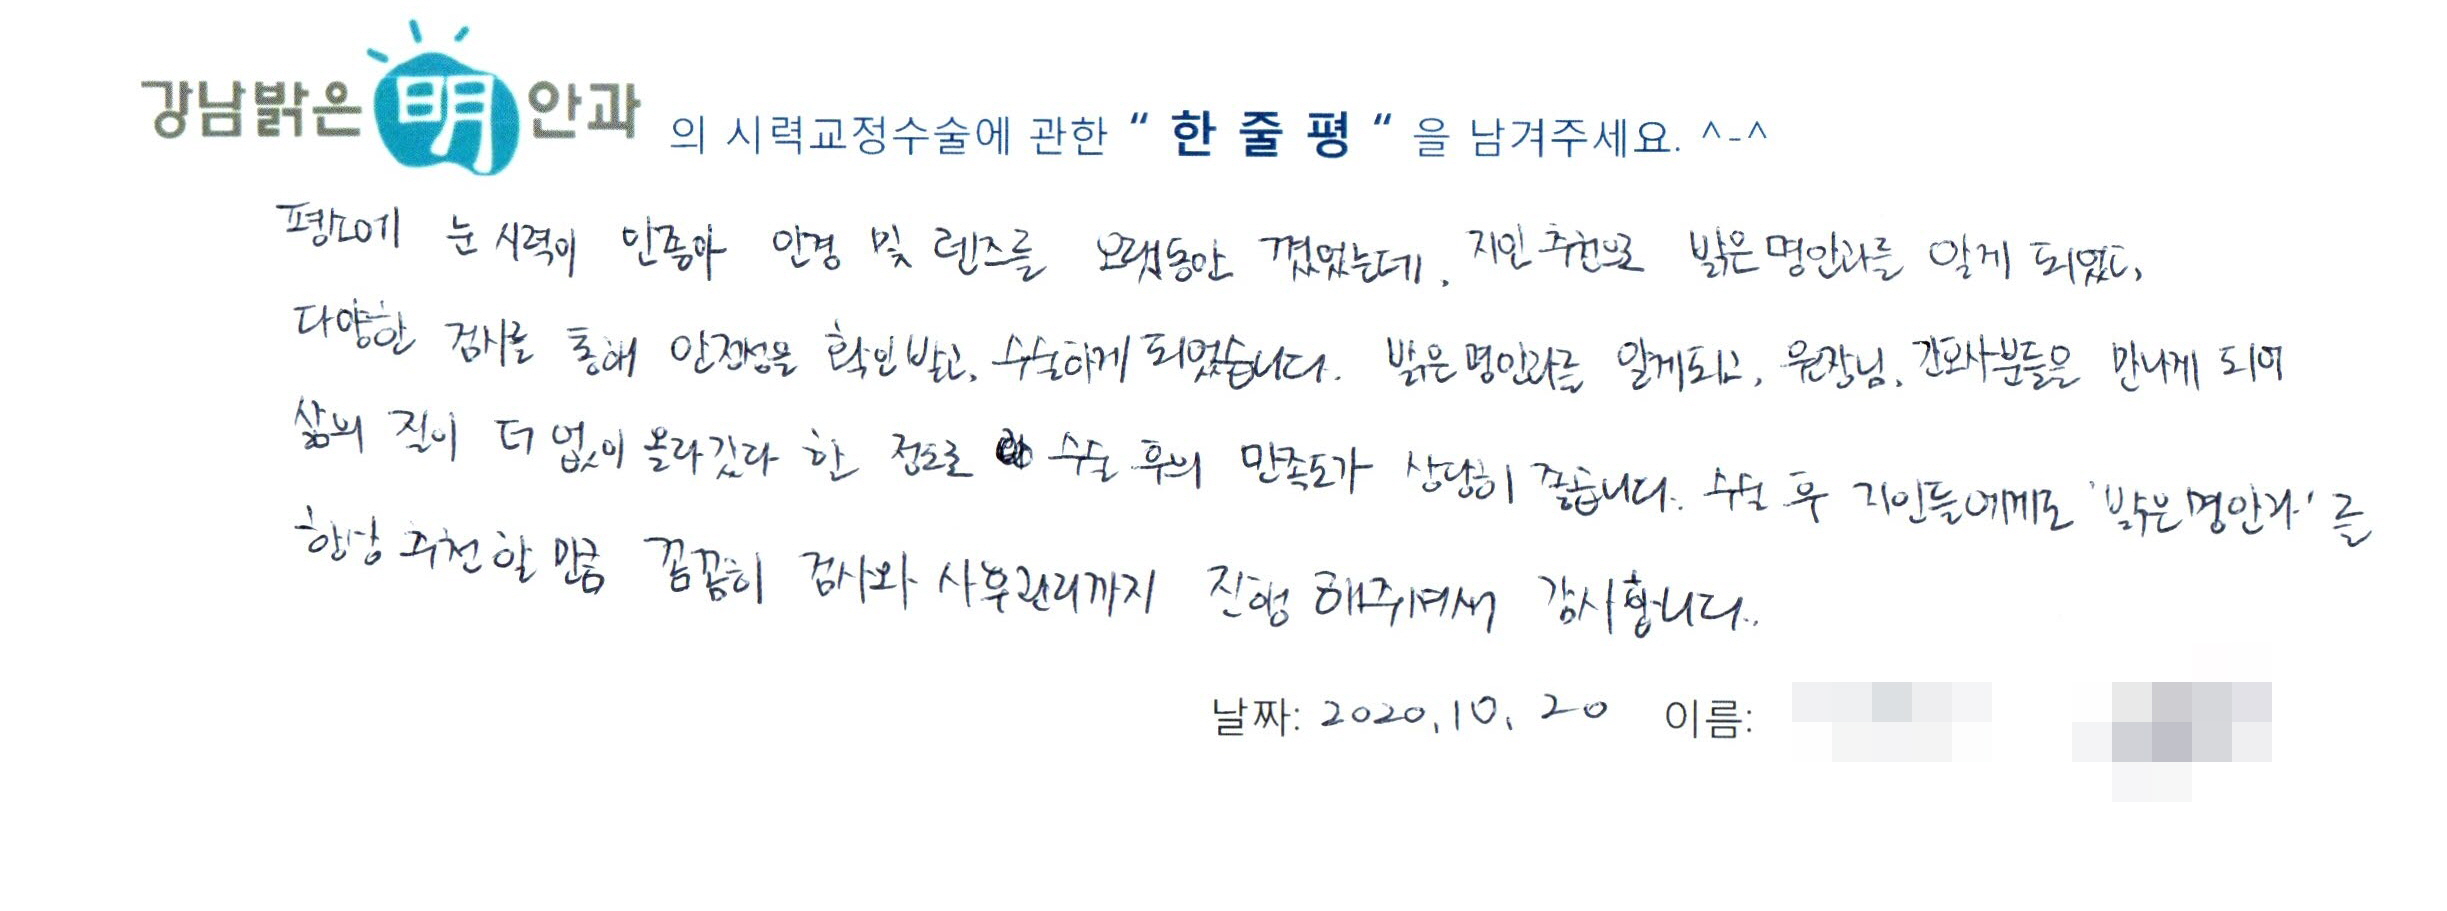 강남밝은明안과 의 시력교정수술에 관한 “ 한 줄 평 “ 을 남겨주세요. ^-^
평상에 눈 시력이 안좋아 안경 및 렌즈를 오랫동안 꼈었는데, 지인 추천으로 밝은명안과를 알게 되었고,
다양한 검사를 통해 안전성을 확인받고, 수술하게 되었습니다. 밝은명안과를 알게되고, 원장님, 간호사분들을 만나게 되어
삶의 질이 더 없이 올라갔다 할 정도로 수술 후의 만족도가 상당히 좋습니다. 수술 후 지인들에게도 '밝은명안과'를
항상 추천할 만큼 꼼꼼히 검사와 사후관리까지 진행 해주셔서 감사합니다..
날짜: 2020.10. 20 이름: